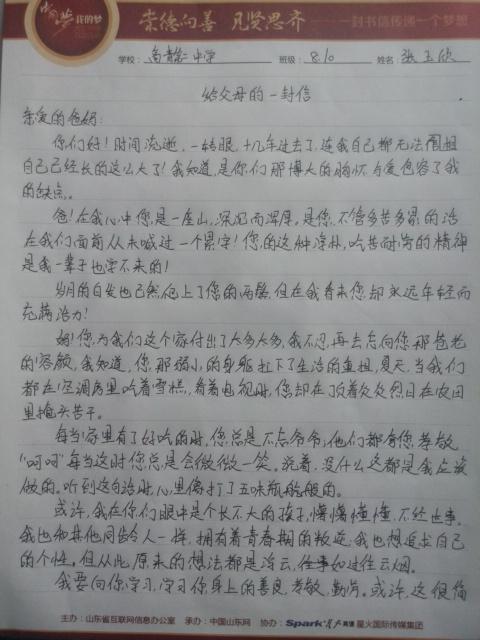 中国梦 我的梦
崇德向善 见贤思齐 ——一封书信传递一个梦想
学校: 高青县 中学 班级: 8.10 姓名 张玉欣
给父母的一封信
亲爱的爸妈:
你们好!时间流逝,一转眼,十几年过去了,连我自己都无法
自己已经长的这么大了!我知道,是你们那博大的胸怀与爱包容了我
的缺点。
爸!在我心中您是一座山,深沉而浑厚。是您,不管多苦多累的活
在我们面前从未喊过一个累字!您的这种淳朴,吃苦耐劳的精神
是我一辈子也学不来的!
岁月的白发也已然爬上了您的两鬓,但在我看来您却永远年轻而
充满活力!
妈!您为我们这个家付出了太多太多,我不忍再去忘向您那苍老
的容颜,我知道,您那弱小的身躯扛下了生活的重担,夏天,当我们
都在空调房里吃着雪糕,看着电视时,您却在顶着炎炎烈日在农田
里埋头苦干。
每当家里有了好吃的时,您总是不忘爷爷;他们都夸您孝敬
“呵呵”每当这时您总是会微微一笑。说着,没什么这都是我应该
做的。听到这句话时,心里像打了五味瓶般的。
或许,我在你们眼中是个长不大的孩子,懵懵懂懂,不经世事。
我也和其他同龄人一样,拥有着青春期的叛逆,我也想追求自己
的个性,但从此,原来的想法都是浮云,往事如过往云烟。
我要向你学习,学习你身上的善良,孝敬,勤劳。或许,这很简
主办:山东省互联网信息办公室 承办:中国山东网 协办:Spark 星火英语 星火国际传媒集团